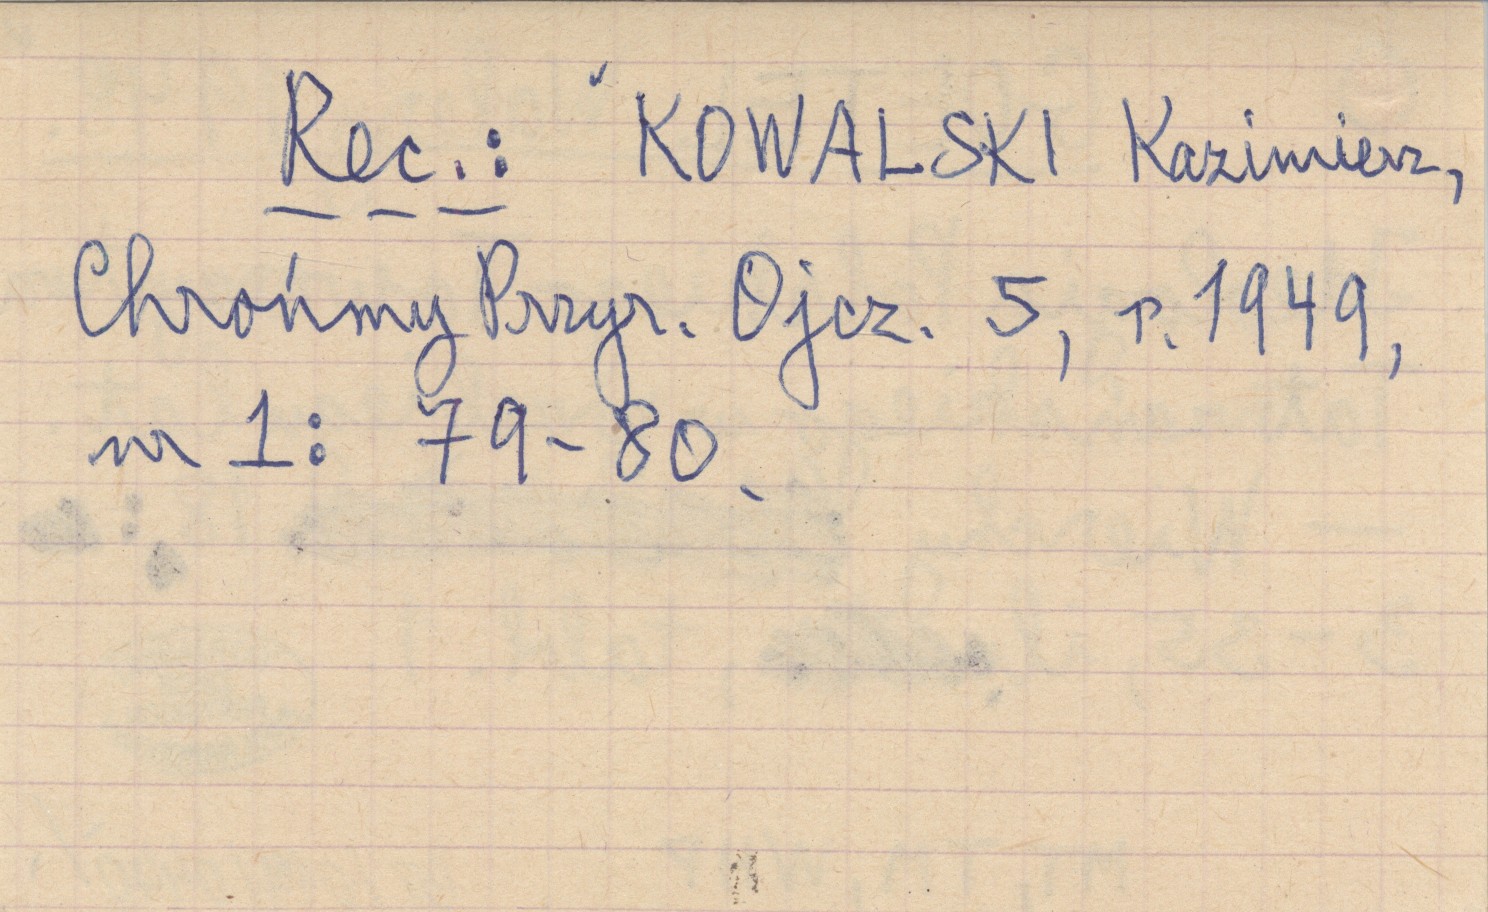 Rec.: KOWALSKI Kazimierz,
Chrońmy Przyr. Ojcz. 5, r. 1949,
nr 1: 79-80.